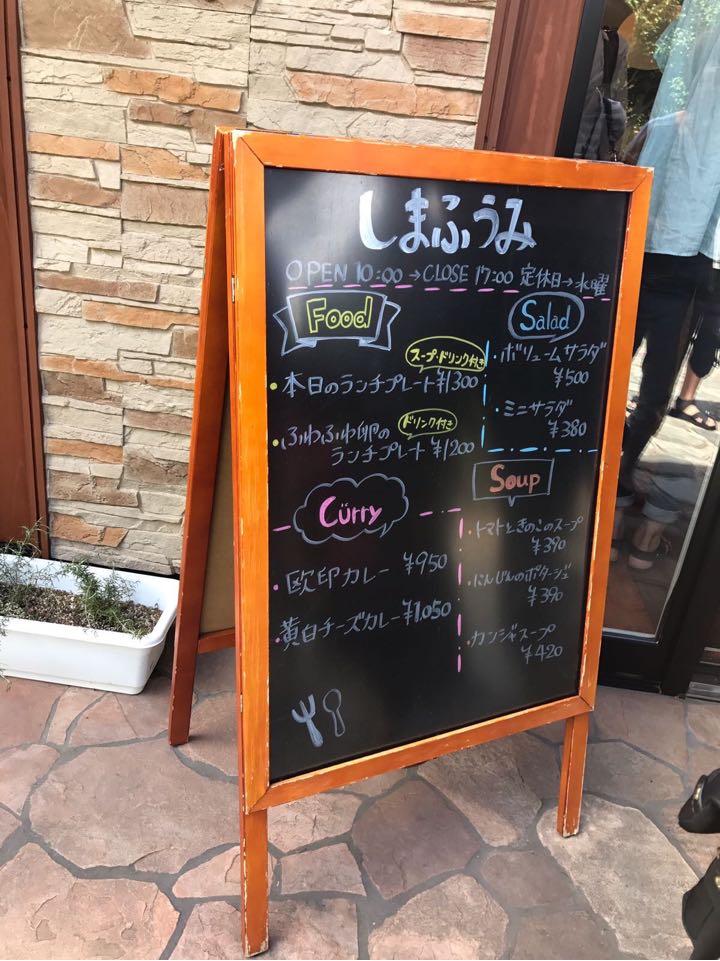 しまふうみ
OPEN 10:00 → CLOSE 17:00 定休日→水曜
Food
スープ・ドリンク付き
・本日のランチプレート ¥1300
ドリンク付き
・ふわふわ卵の
ランチプレート ¥1200
Curry
・欧印カレー ¥950
・黄白チーズカレー ¥1,050
Salad
・ボリュームサラダ
¥500
・ミニサラダ
¥380
Soup
・トマトときのこのスープ
¥390
・にんじんのポタージュ
¥390
・カンジャスープ
¥420